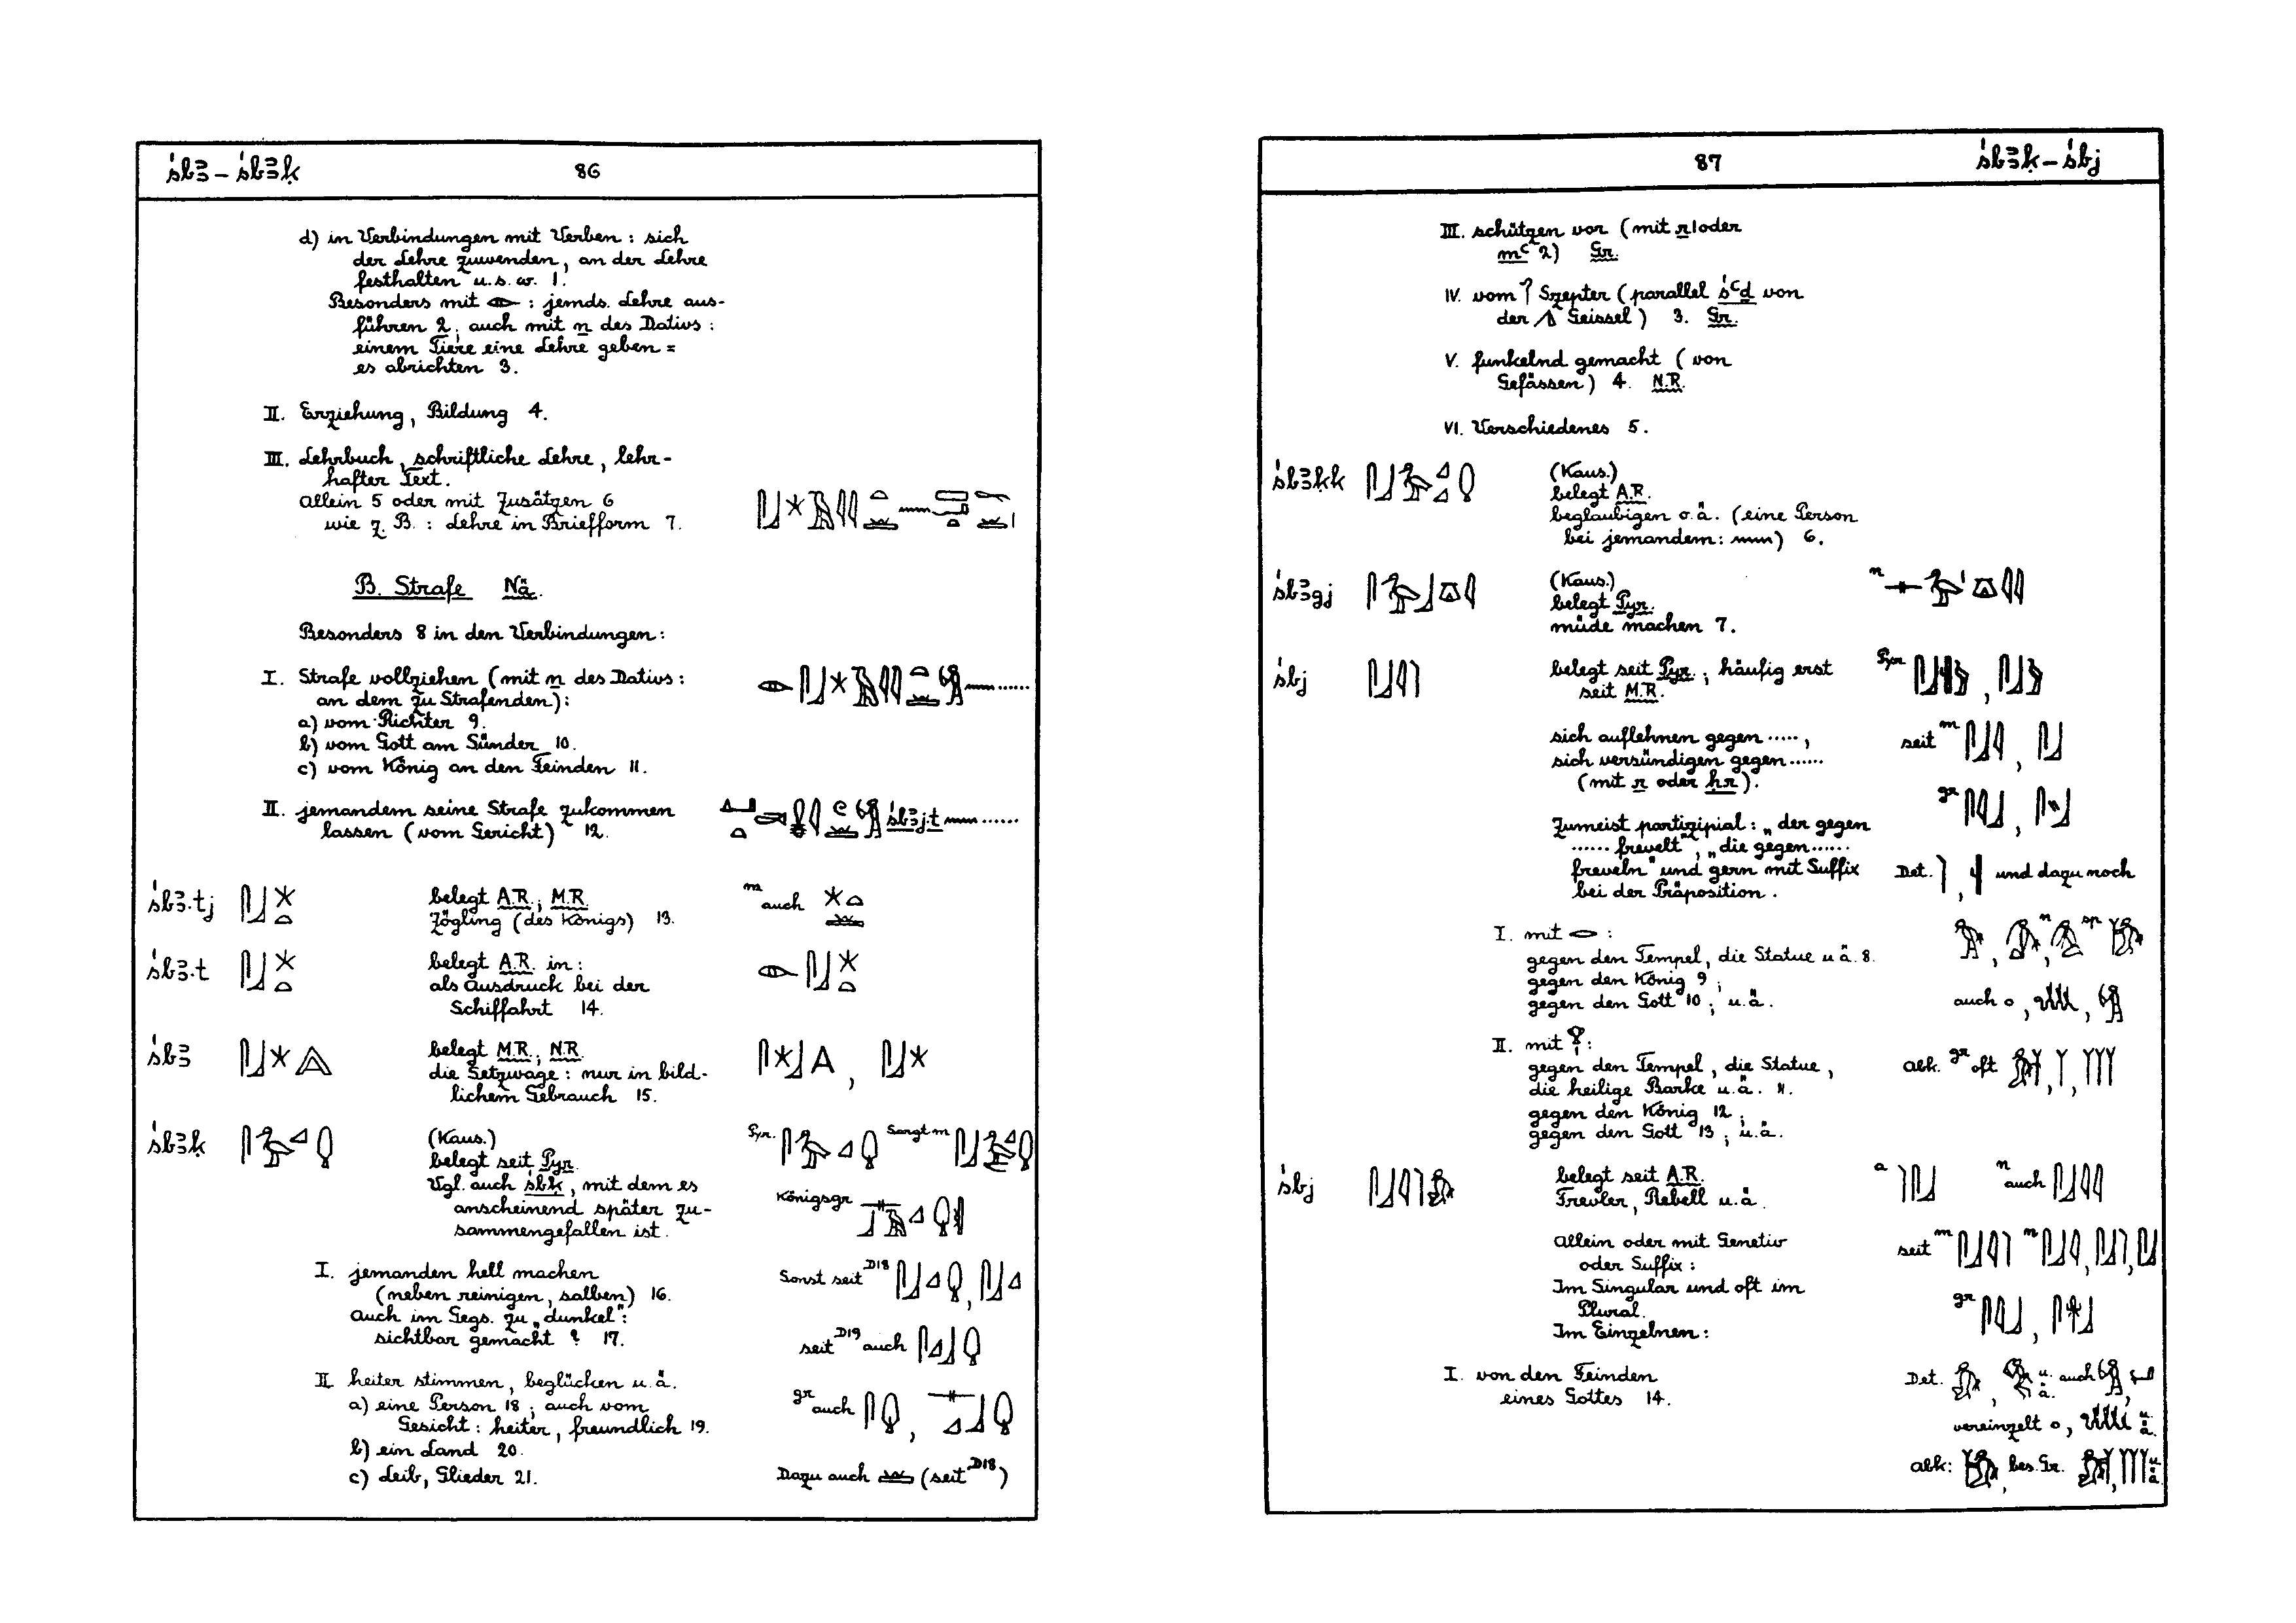 śbꜣ – śbꜣḳ 86
d) in Verbindungen mit Verben : sich
der Lehre zuwenden, an der Lehre
festhalten u.s.w. 1.
Besonders mit : jemds. Lehre aus-
führen 2; auch mit n des Dativs :
einem Tiere eine Lehre geben =
es abrichten 3.
II. Erziehung, Bildung 4.
III. Lehrbuch, schriftliche Lehre, lehr-
hafter Text.
Allein 5 oder mit Zusätzen 6
wie z. B. : Lehre in Briefform 7.
B. Strafe Nä.
Besonders 8 in den Verbindungen :
I. Strafe vollziehen (mit n des Dativs :
an dem zu Strafenden) :
a) vom Richter 9.
b) vom Gott am Sünder 10.
c) vom König an den Feinden 11.
II. jemandem seine Strafe zukommen
lassen (vom Gericht) 12.
śbꜣj.t ......
śbꜣ.tj belegt A.R.; M.R. m auch
Zögling (des Königs) 13.
śbꜣ.t belegt A.R. in :
als Ausdruck bei der
Schiffahrt 14.
śbꜣ belegt M.R.; N.R.
die Setzwage : nur in bild-
lichem Gebrauch 15.
śbꜣḳ (Kaus.) Pyr. Sargt m
belegt seit Pyr.
Vgl. auch śbḳ, mit dem es
anscheinend später zu- Königsgr
sammengefallen ist.
I. jemanden hell machen Sonst seit D18
(neben reinigen, salben) 16.
Auch im Gegs. zu „dunkel" :
sichtbar gemacht ? 17. seit D19 auch
II. heiter stimmen, beglücken u. ä.
a) eine Person 18; auch vom gr auch
Gesicht : heiter, freundlich 19.
b) ein Land 20.
c) Leib, Glieder 21. Dazu auch (seit D18)
87 śbꜣḳ – śbj
III. schützen vor (mit r 1 oder
mꜥ 2) Gr.
IV. vom Szepter (parallel śꜥḏ von
der Geissel) 3. Gr.
V. funkelnd gemacht (von
Gefässen) 4. N.R.
VI. Verschiedenes 5.
śbꜣḳḳ (Kaus.)
belegt A.R.
beglaubigen o. ä. (eine Person
bei jemandem : ) 6.
śbꜣgj (Kaus.) n
belegt Pyr.
müde machen 7.
śbj belegt seit Pyr.; häufig erst Pyr.
seit M.R.
sich auflehnen gegen ....., seit m
sich versündigen gegen ......
(mit r oder ḥr). gr
Zumeist partizipial : „der gegen
...... frevelt", „die gegen ......
freveln" und gern mit Suffix Det. , und dazu noch
bei der Präposition.
I. mit : n sp
gegen den Tempel, die Statue u ä. 8.
gegen den König 9;
gegen den Gott 10; u. ä. auch
II. mit :
gegen den Tempel, die Statue, Abk. gr oft
die heilige Barke u. ä. 11.
gegen den König 12;
gegen den Gott 13; u. ä.
śbj belegt seit A.R. a n auch
Frevler, Rebell u. ä.
Allein oder mit Genetiv seit m n
oder Suffix :
Im Singular und oft im
Plural. gr
Im Einzelnen :
I. von den Feinden Det. u. ä. auch
eines Gottes 14.
vereinzelt u. ä.
Abk : bes. Gr. u. ä.